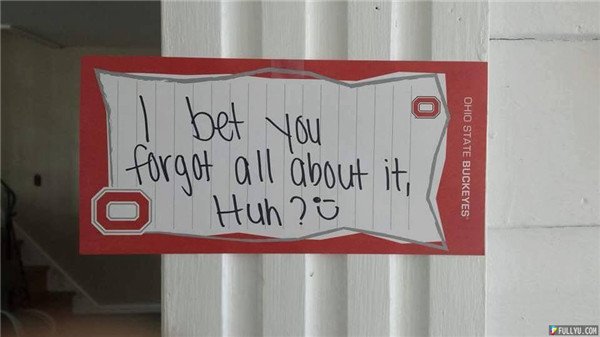 I bet you
forgot all about it,
Huh?
OHIO STATE BUCKEYES
O
O
FULLYU.COM